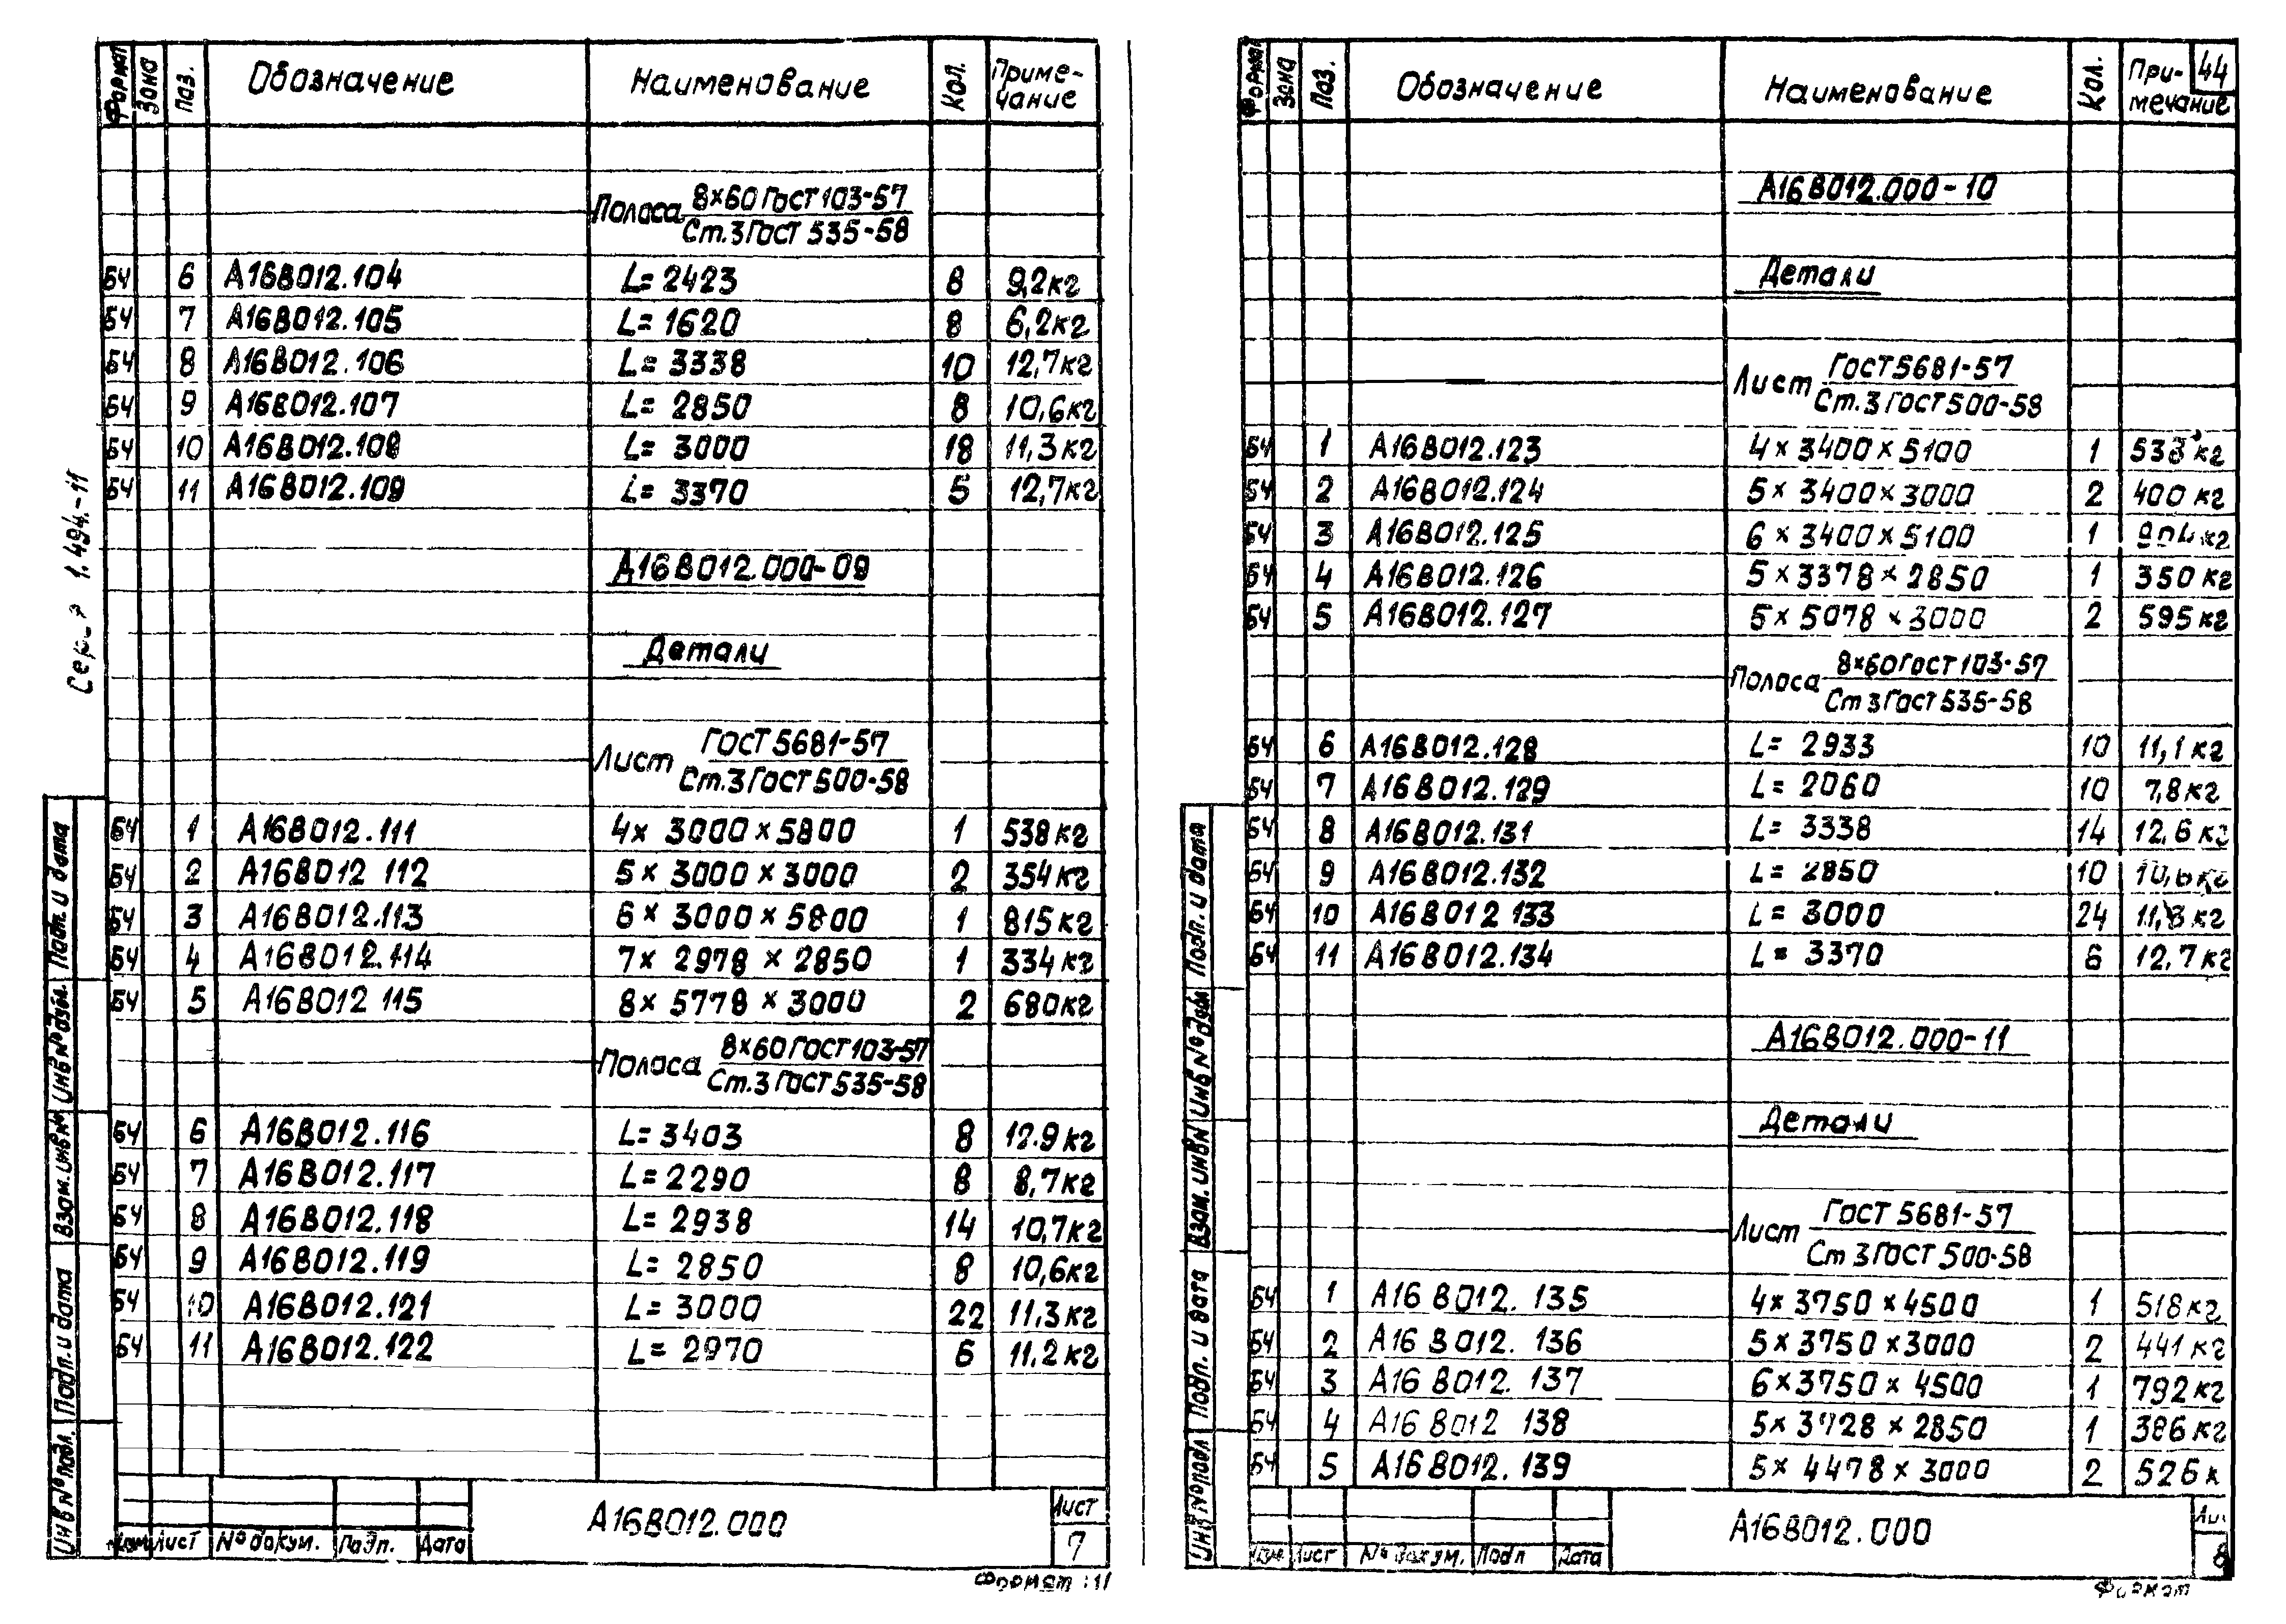 Формат Зона Поз. Обозначение Наименование Кол. Приме-
чание
Полоса 8×60 ГОСТ 103-57
Ст.3 ГОСТ 535-58
БЧ 6 А16В012.104 L= 2423 8 9,2кг
БЧ 7 А16В012.105 L= 1620 8 6,2кг
БЧ 8 А16В012.106 L= 3338 10 12,7кг
БЧ 9 А16В012.107 L= 2850 8 10,6кг
БЧ 10 А16В012.108 L= 3000 18 11,3кг
БЧ 11 А16В012.109 L= 3370 5 12,7кг
А16В012.000-09
Детали
Лист ГОСТ 5681-57
Ст.3 ГОСТ 500-58
БЧ 1 А16В012.111 4× 3000 × 5800 1 538кг
БЧ 2 А16В012 112 5× 3000 × 3000 2 354кг
БЧ 3 А16В012.113 6× 3000 × 5800 1 815кг
БЧ 4 А16В012.114 7× 2978 × 2850 1 334кг
БЧ 5 А16В012 115 8× 5778 × 3000 2 680кг
Полоса 8×60 ГОСТ 103-57
Ст.3 ГОСТ 535-58
БЧ 6 А16В012.116 L= 3403 8 12.9кг
БЧ 7 А16В012.117 L= 2290 8 8,7кг
БЧ 8 А16В012.118 L= 2938 14 10,7кг
БЧ 9 А16В012.119 L= 2850 8 10,6кг
БЧ 10 А16В012.121 L= 3000 22 11,3кг
БЧ 11 А16В012.122 L= 2970 6 11.2кг
1.494.-11
Инв № подл. Подп. и дата Взам. инв № Инв № дубл. Подп. и дата
Изм Лист № докум. Подп. Дата
А16В012.000
Лист
7
Формат 11
44
Формат Зона Поз. Обозначение Наименование Кол. При-
мечание
А16В012.000-10
Детали
Лист ГОСТ 5681-57
Ст.3 ГОСТ 500-58
БЧ 1 А16В012.123 4× 3400 × 5100 1 533 кг
БЧ 2 А16В012.124 5× 3400 × 3000 2 400 кг
БЧ 3 А16В012.125 6 × 3400 × 5100 1 кг
БЧ 4 А16В012.126 5 × 3378 × 2850 1 350 кг
БЧ 5 А16В012.127 5 × 5078 × 3000 2 595 кг
Полоса 8×60 ГОСТ 103-57
Ст 3 ГОСТ 535-58
БЧ 6 А16В012.128 L= 2933 10 11,1 кг
БЧ 7 А16В012.129 L= 2060 10 7,8 кг
БЧ 8 А16В012.131 L= 3338 14 12,6 кг
БЧ 9 А16В012.132 L= 2850 10 10,6кг
БЧ 10 А16В012 133 L= 3000 24 кг
БЧ 11 А16В012.134 L= 3370 6 12,7кг
А16В012.000-11
Детали
Лист ГОСТ 5681-57
Ст 3 ГОСТ 500-58
БЧ 1 А16В012. 135 4× 3750 × 4500 1 518кг
БЧ 2 А16В012. 136 5× 3750 × 3000 2 441кг
БЧ 3 А16В012. 137 6×3750 × 4500 1 792кг
БЧ 4 А16В012 138 5× 3728 × 2850 1 386кг
БЧ 5 А16В012. 139 5× 4478 × 3000 2 526к
Инв № подл Подп. и дата Взам. инв № Инв № дубл Подп. и дата
Изм Лист № докум. Подп Дата
А16В012.000
Ли
8
Формат